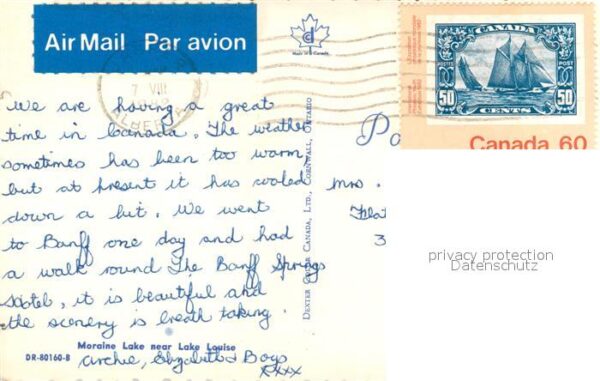 Air Mail Par avion
Made in Canada
7 VIII
ALBERTA
CANADA
POSTES POST
50 50
CENTS
Canada 60
We are having a great
time in Canada. The weather
sometimes has been too warm,
but at present it has cooled
down a bit. We went
to Banff one day and had
a walk round The Banff Springs
Hotel, it is beautiful and
the scenery is breath taking.
Archie, Elizabeth & Boys
xxxx
Moraine Lake near Lake Louise
DR-80160-B
DEXTER COLOR CANADA, LTD., CORNWALL, ONTARIO
Mrs.
Flat
3
privacy protection
Datenschutz